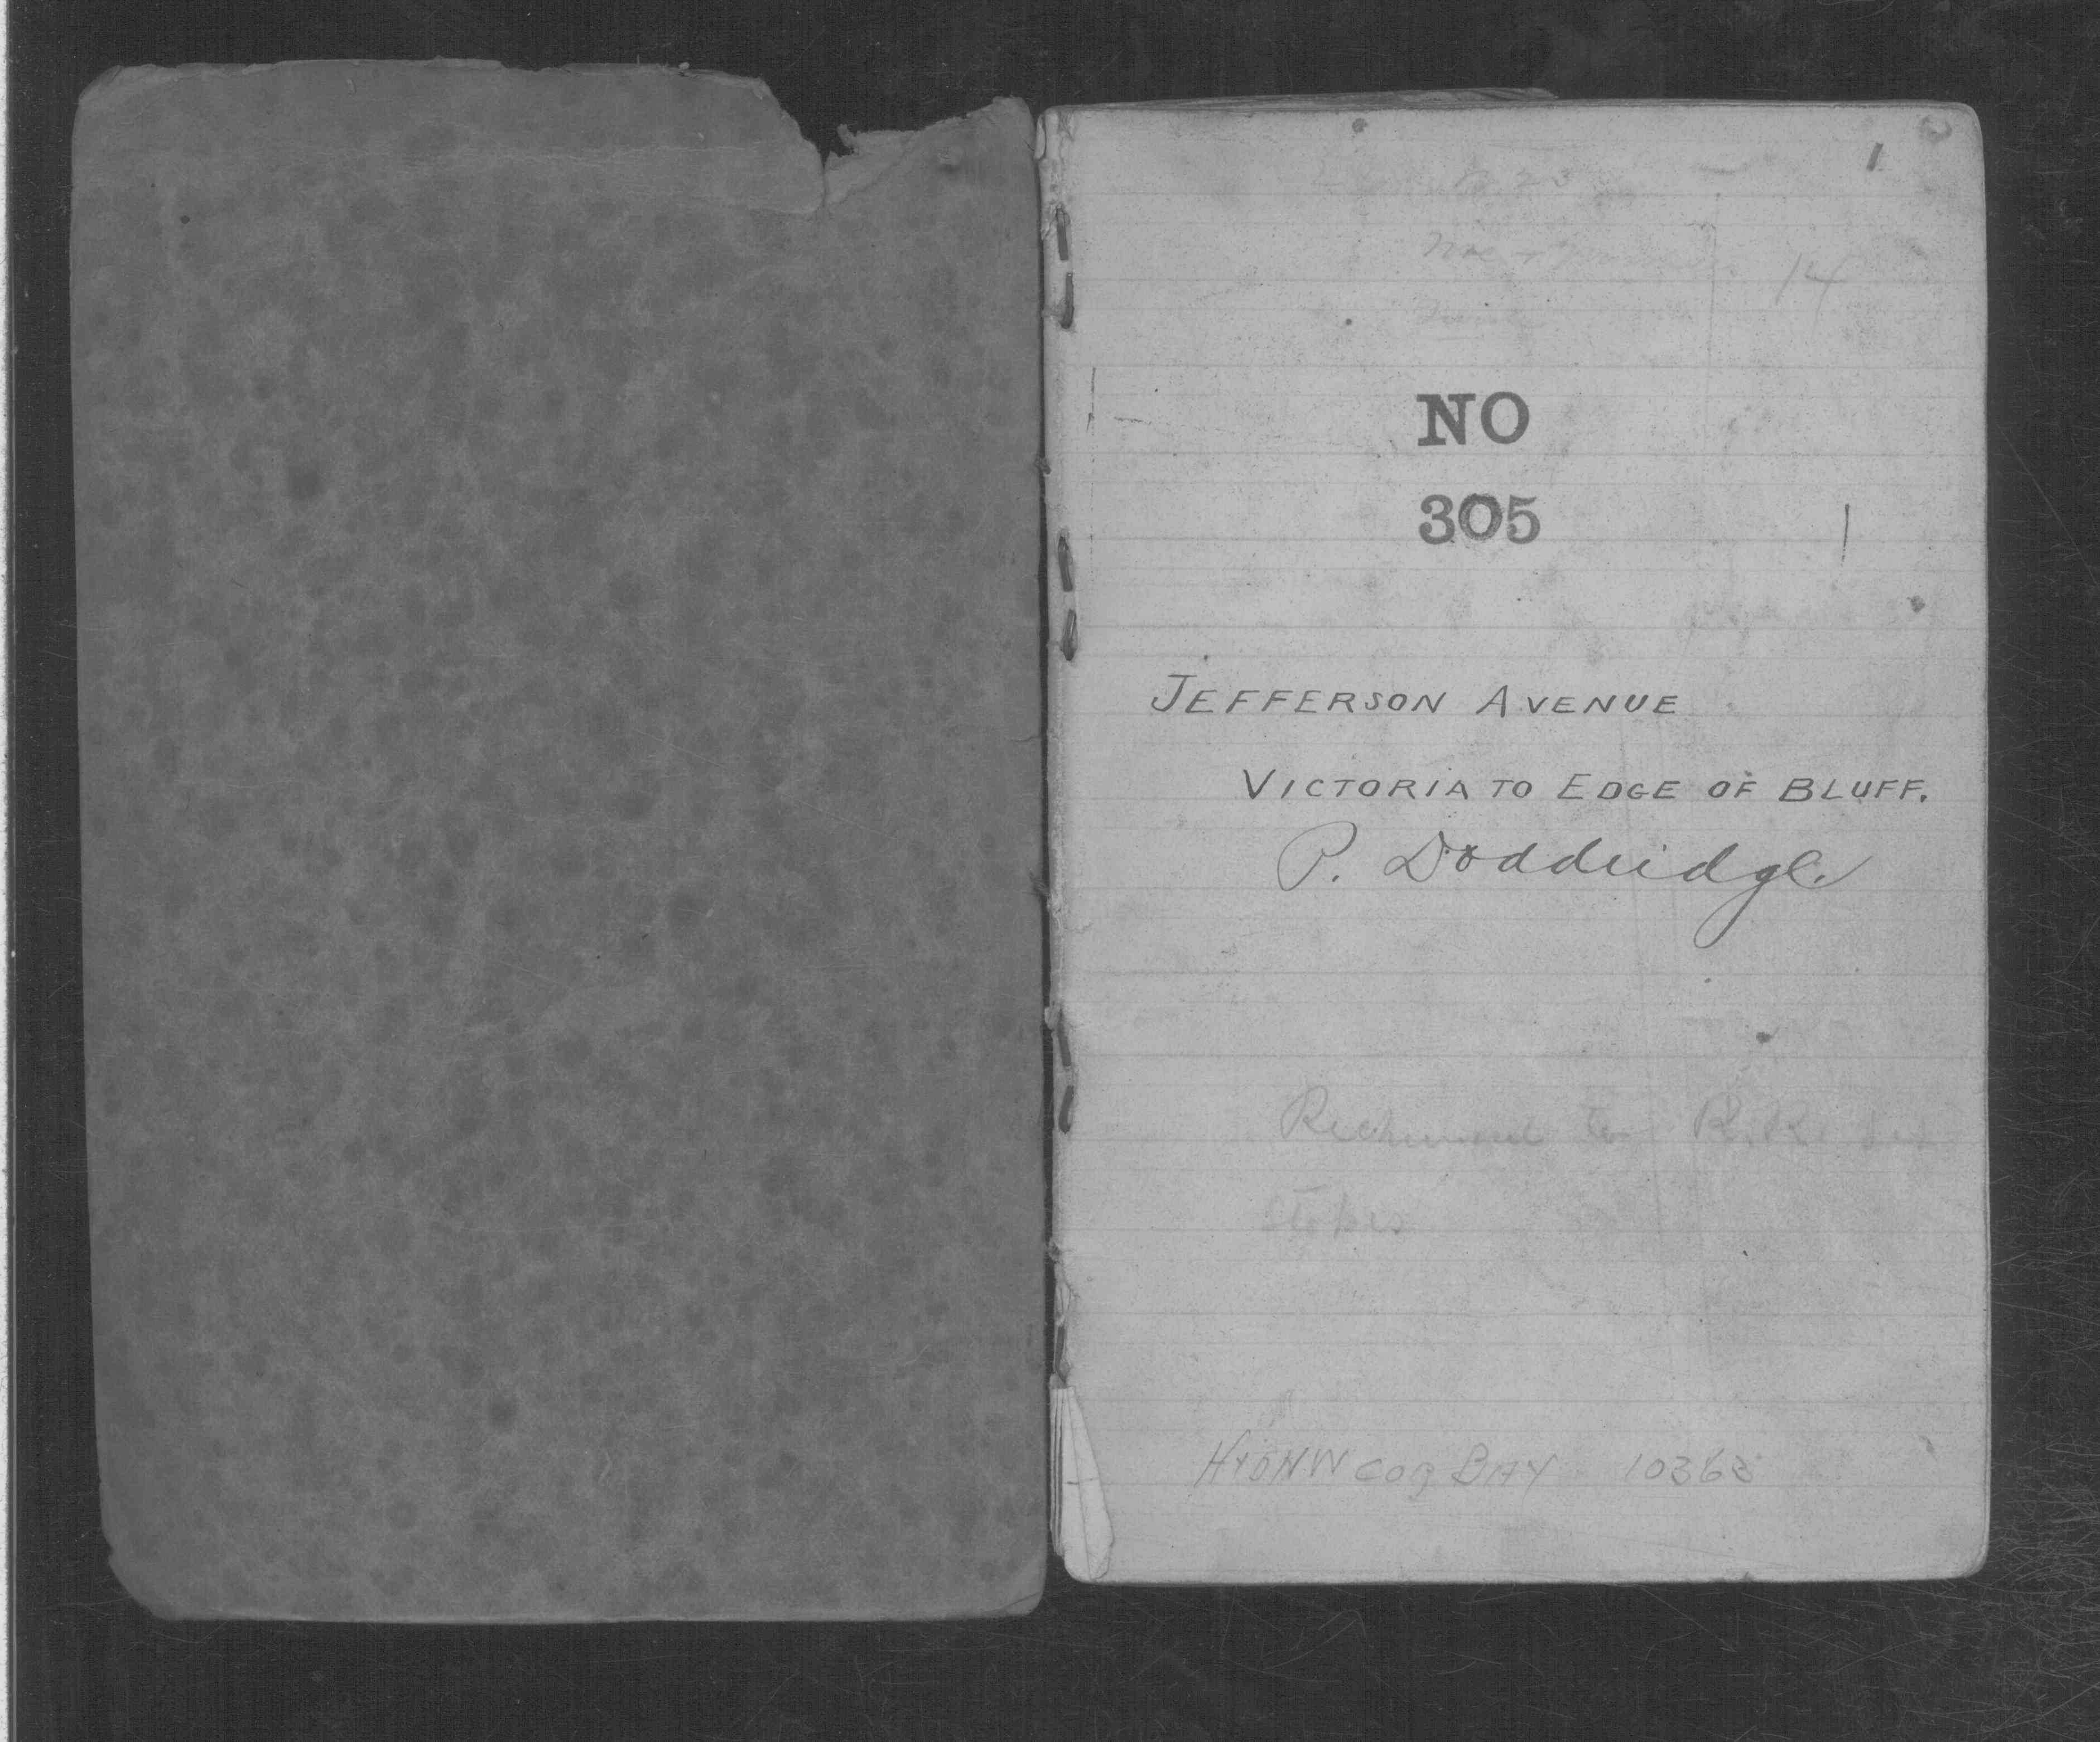 1
14
NO
305
JEFFERSON AVENUE
VICTORIA TO EDGE OF BLUFF.
P. Doddridge.
to R.R.
Stokes
HYDNW COR BAY 10363